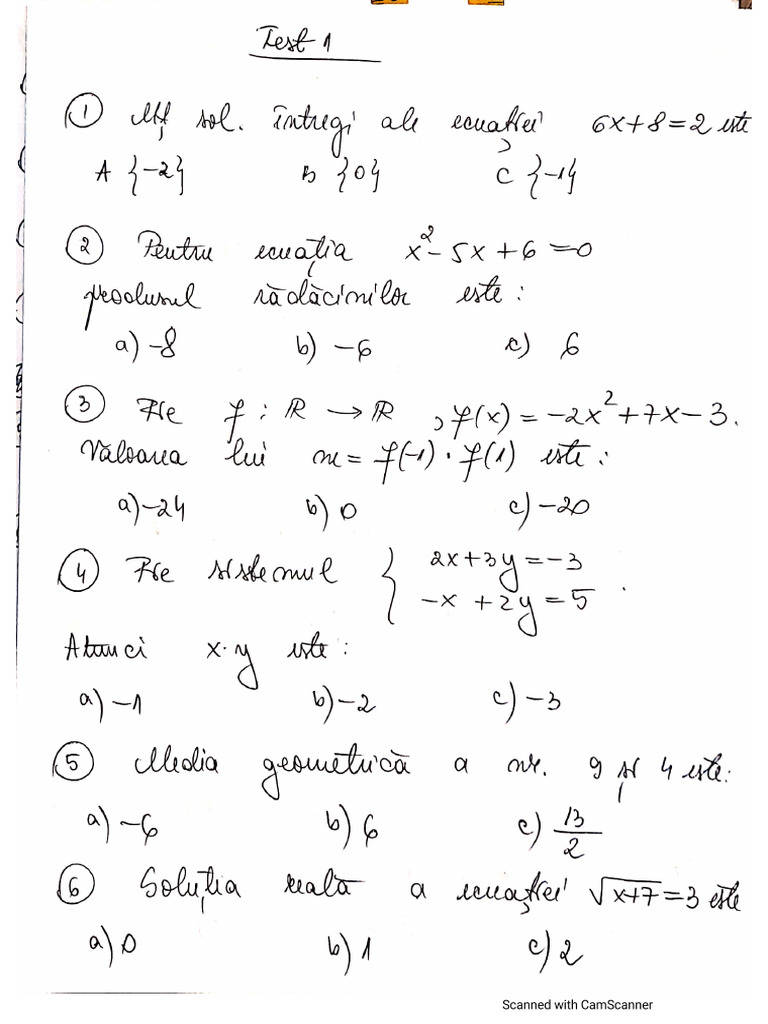 Test 1
① Mţ sol. întregi ale ecuaţiei 6x+8=2 este
A {-2} B {0} C {-1}
② Pentru ecuaţia x²-5x+6=0
produsul rădăcinilor este:
a) -8 b) -6 c) 6
③ Fie f: ℝ → ℝ, f(x) = -2x²+7x-3.
Valoarea lui m = f(-1)·f(1) este:
a) -24 b) 0 c) -20
④ Fie sistemul { 2x+3y=-3
-x+2y=5.
Atunci x·y este:
a) -1 b) -2 c) -3
⑤ Media geometrică a nr. 9 şi 4 este:
a) -6 b) 6 c) 13/2
⑥ Soluţia reală a ecuaţiei √x+7=3 este
a) 0 b) 1 c) 2
Scanned with CamScanner